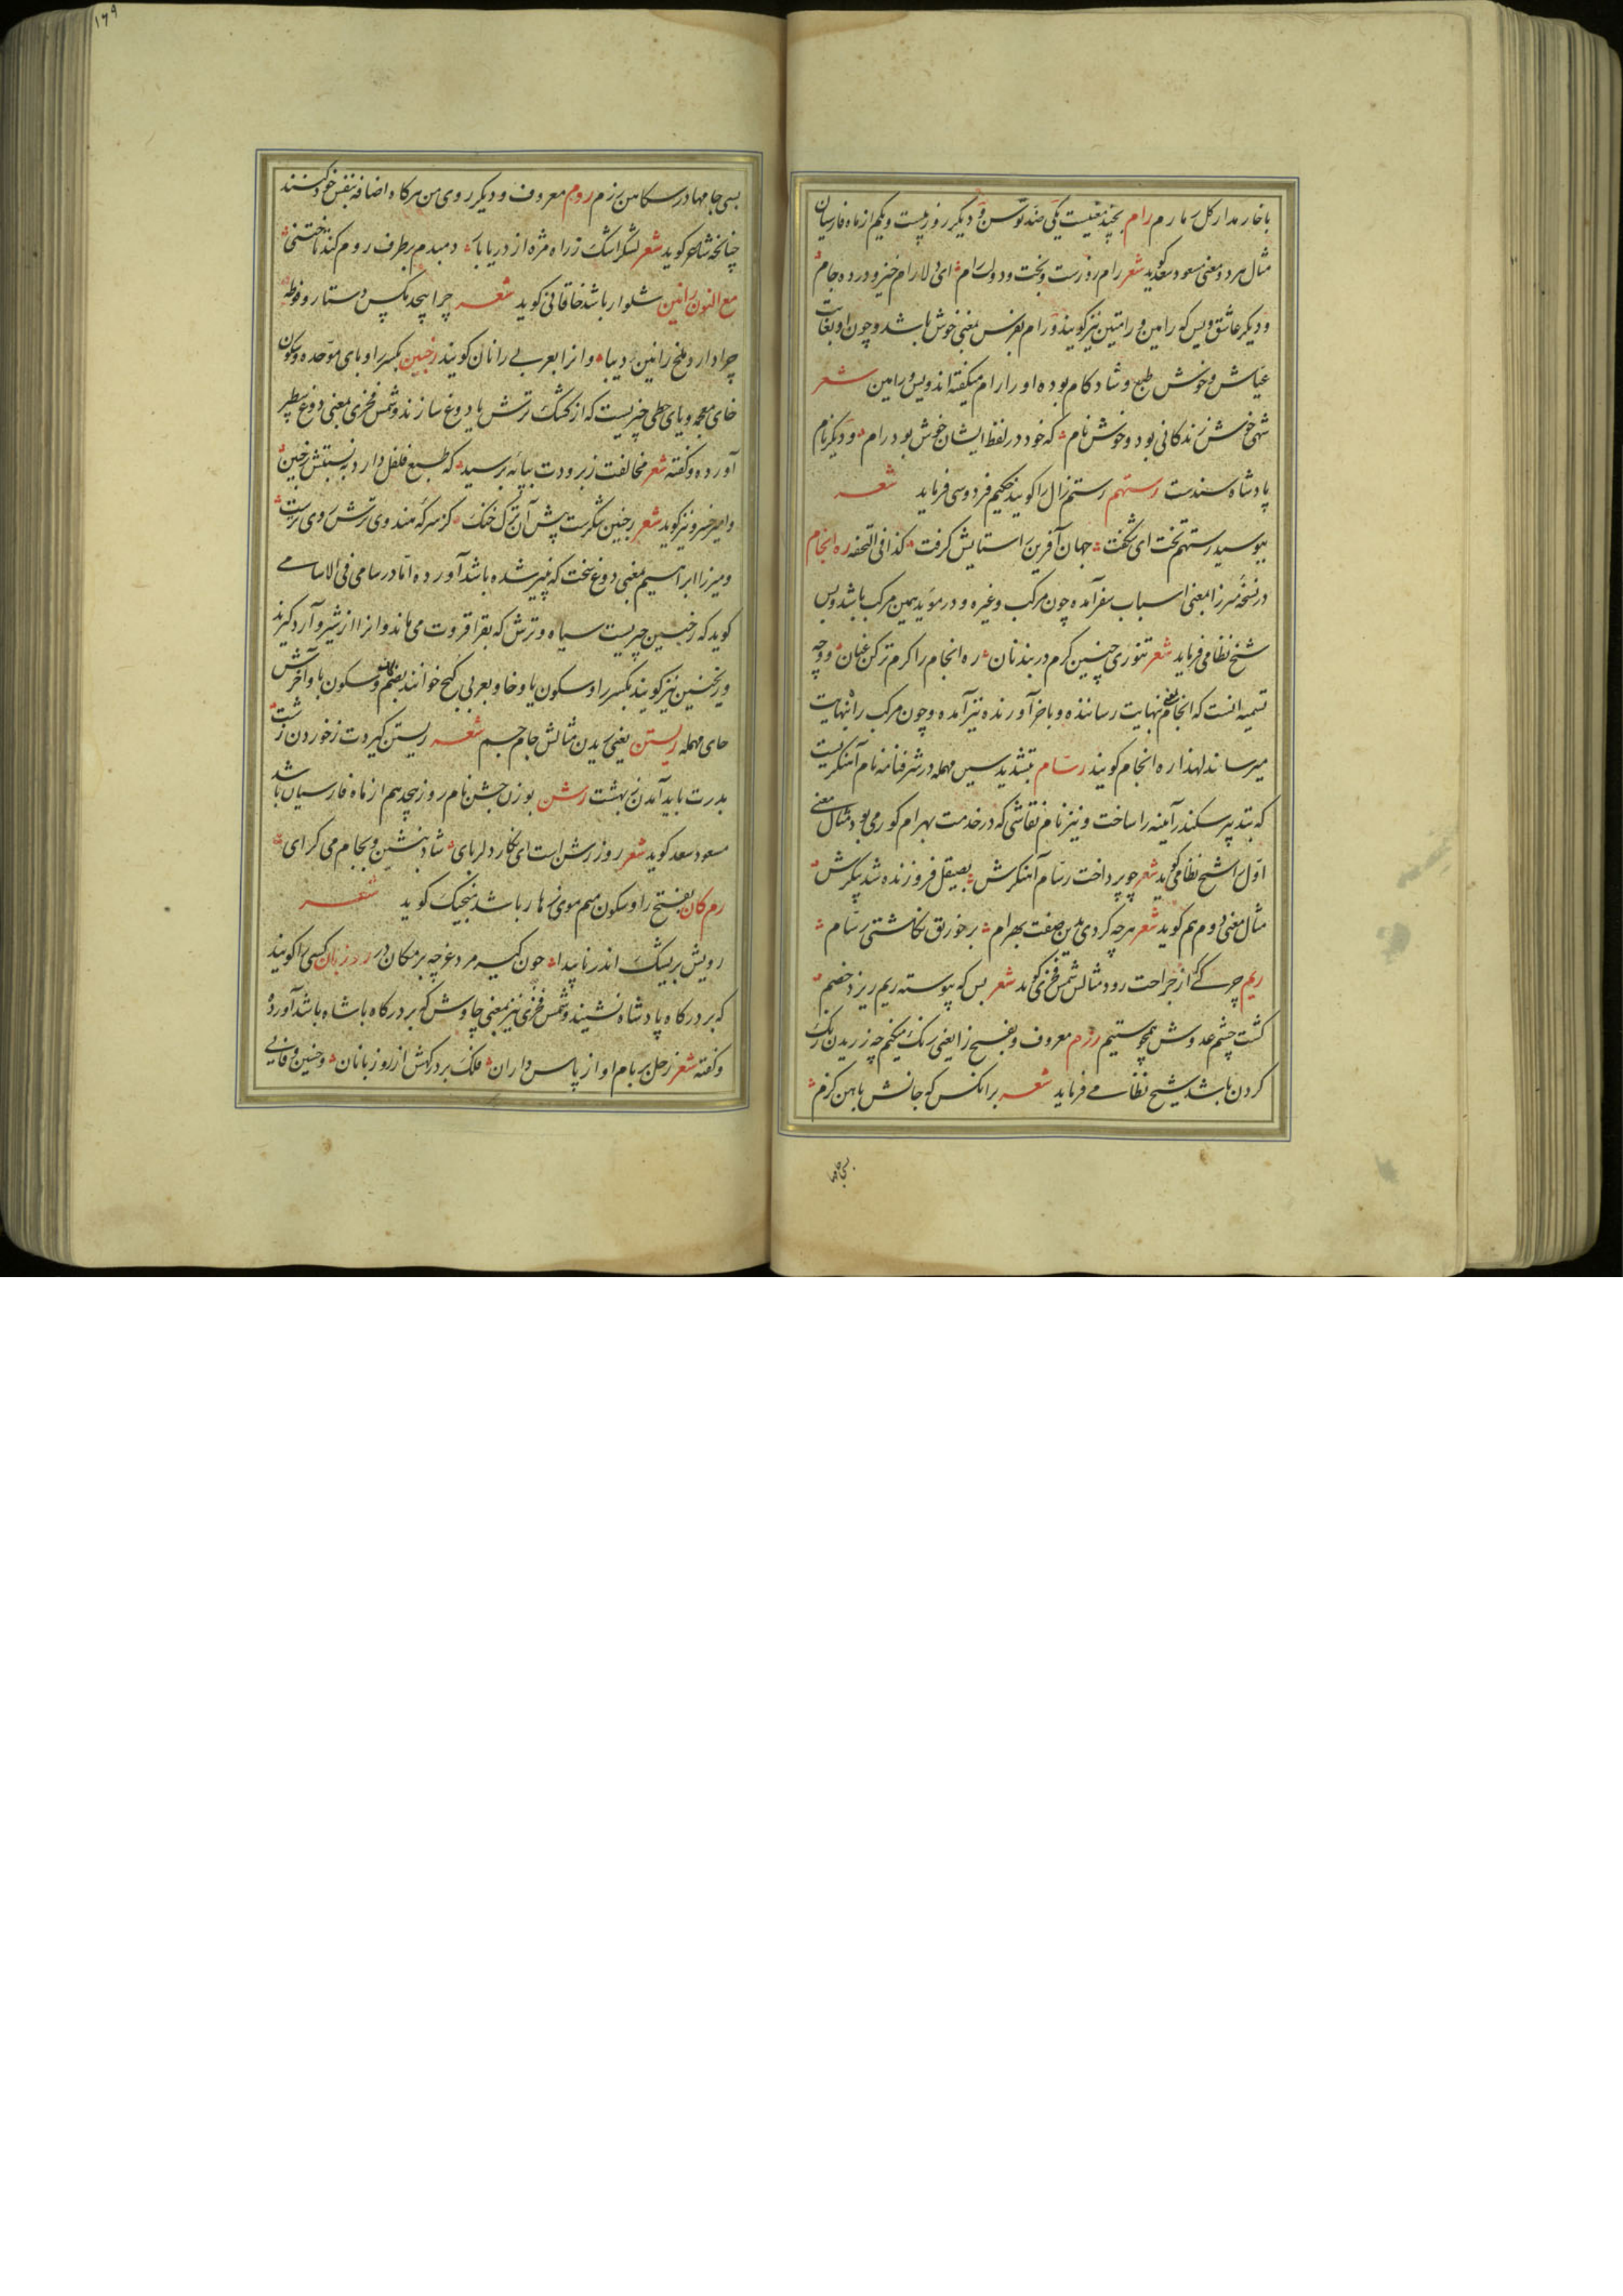 با خار مدار کل رمارم رام بچند معنیست یکی ضد توسن و دیکر روز بیست ویکم از ماه فارسیان
مثال هر دو معنی مسعود سعد کوید شعر رام روزست و بخت و دولت رام ای دلارام خیز و در ده جام
و دیکر عاشق ویس که رامین و رامتین نیز کویند و رام بفرس بمعنی خوش باشد و چون او بغایت
عیاش و خوش طبع و شادکام بوده او را رام میکفته اند ویس و رامین شعر
شهی خوش زندکانی بود و خوش نام که خود در لفظ ایشان خوش بود رام و دیکر نام
پادشاه سندست رستهم رستم زال را کویند حکیم فردوسی فرماید شعر
ببوسید رستهم تخت ای شکفت جهان آفرین را ستایش کرفت کذا فی التحفه ره انجام
در نسخه میرزا بمعنی اسباب سفر آمده چون مرکب و غیره و در موید همین مرکب باشد و بس
شیخ نظامی فرماید شعر تنوری چنین کرم در بند نان ره انجام را کرم تر کن عنان و وجه
تسمیه انست که انجام بمعنی نهایت رساننده و باخر آورنده نیز آمده و چون مرکب راه بنهایت
میرساند لهذا ره انجام کویند رسام بتشدید سین مهمله در شرفنامه نام آهنکریست
که بتدبیر سکندر آیینه را ساخت و نیز نام نقاشی که در خدمت بهرام کور می بود مثال معنی
اول را شیخ نظامی کوید شعر چو پرداخت رسام آهنکرش بصیقل فروزنده شد پیکرش
مثال معنی دوم هم کوید شعر هرچه کردی بدین صفت بهرام بر خورنق نکاشتی رسام
ریم چرکی که از جراحت رود مثالش شمس فخری کوید شعر بس که پیوسته ریم ریزد خصم
کشت چشم عدوش همچو ستیم رزم معروف و بفتح زا یعنی رنک میکنم چه رزیدن رنک
کردن باشد شیخ نظامی فرماید شعر بر انکس که جانش باهن کزم
بسی جامها
۱۶۹
بسی جامها در سکاهن رزم روم معروف و دیکر روی من هرکاه اضافه بنفس خود کنند
چنانچه شاعر کوید شعر لشکر اشک ز راه مژه از دریا بار دمبدم بر طرف روم کند تاختنی
مع النون رانین شلوار باشد خاقانی کوید شعر چرا پیچد مکس دستار فوطه
چرا دارد ملخ رانین دیبا و انرا بعربی رانان کویند رخبین بکسر را و بای موحده و سکون
خای معجمه و یای حطی چیزیست که از کشک ترش یا دوغ سازند و شمس فخری بمعنی دوغ سطبر
آورده و کفته شعر مخالفت ز برودت بپایه برسید که طبع فلفل دارد به نسبتش رخبین
و امیر خسرو نیز کوید شعر رخبین شکرست پیش آن ترک خنک کز سرکه هندوی ترش روی ترست
و میرزا ابراهیم بمعنی دوغ سخت که پنیر شده باشد آورده اما در سامی فی الاسامی
کوید که رخبین چیزیست سیاه و ترش که بقراقروت می ماند و انرا از شیر و آرد کیرند
و ریخنین نیز کویند بکسر را و سکون یا و خا و بعربی کبح خوانند بضم کاف و سکون با و آخرش
حای مهمله ریستن یعنی ریدن مثالش جام جم شعر ریستن کیردت ز خوردن زشت
بدرت باید آمدن ز بهشت رشن بوزن جشن نام روز هیجدهم از ماه فارسیان باشد
مسعود سعد کوید شعر روز رشن است ای نکار دلربای شاد بنشین و بجام می کرای
رم کان بفتح را و سکون میم موی زهار باشد منجیک کوید شعر
رویش بریک اندر ناپیدا چون کیر مرد غرچه برمکان در روزبان کسی را کویند
که بر درکاه پادشاه نشیند و شمس فخری نیز بمعنی چاوش که بر درکاه پادشاه باشد آورده
و کفته شعر زحل بر بام او از پاس داران فلک بر درکهش از روزبانان و حسین وفایی